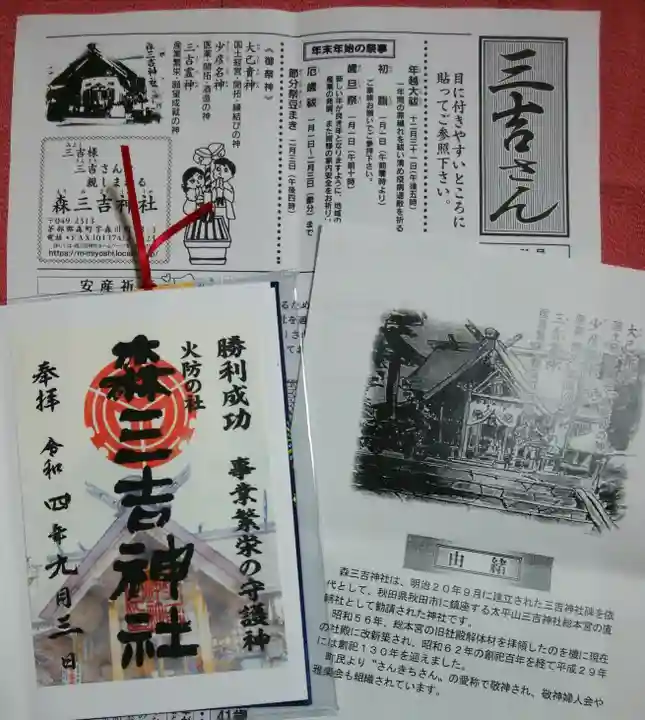 三吉さん
目に付きやすいところに
貼ってご参照下さい。
年末年始の祭事
年越大祓 十二月三十一日(午後五時)
一年間の罪穢れを祓い清め疫病退散を祈る
初詣 一月一日(午前零時より)
ご家族お揃いでご参拝下さい。
歳旦祭 一月一日(午前十時)
新しい年が良き年となりますように、地域の
産業の発展、また皆様の家内安全をお祈り
厄歳祓 一月一日~二月三日(節分)まで
節分祭豆まき 二月三日(午後四時)
《御祭神》
大己貴神
国土経営・開拓・縁結びの神
少彦名神
医薬・開拓・酒造の神
三吉霊神
産業繁栄・願望成就の神
森三吉神社
三吉様
三吉さん
親しまれる
森三吉神社
〒049-2313
安産祈
勝利成功 事業繁栄の守護神
火防の社
森三吉神社
奉拝 令和四年九月三日
大己
少彦
三吉
由緒
森三吉神社は、明治20年9月に建立された三吉神社碑を依
代として、秋田県秋田市に鎮座する太平山三吉神社総本宮の直
轄社として勧請された神社です。
昭和56年、総本宮の旧社殿解体材を拝領したのを機に現在
の社殿に改新築され、昭和62年の創祀百年を経て平成29年
には創祀130年を迎えました。
町民より“さんきちさん〟の愛称で敬神され、敬神婦人会や
雅楽会も組織されています。
41歳